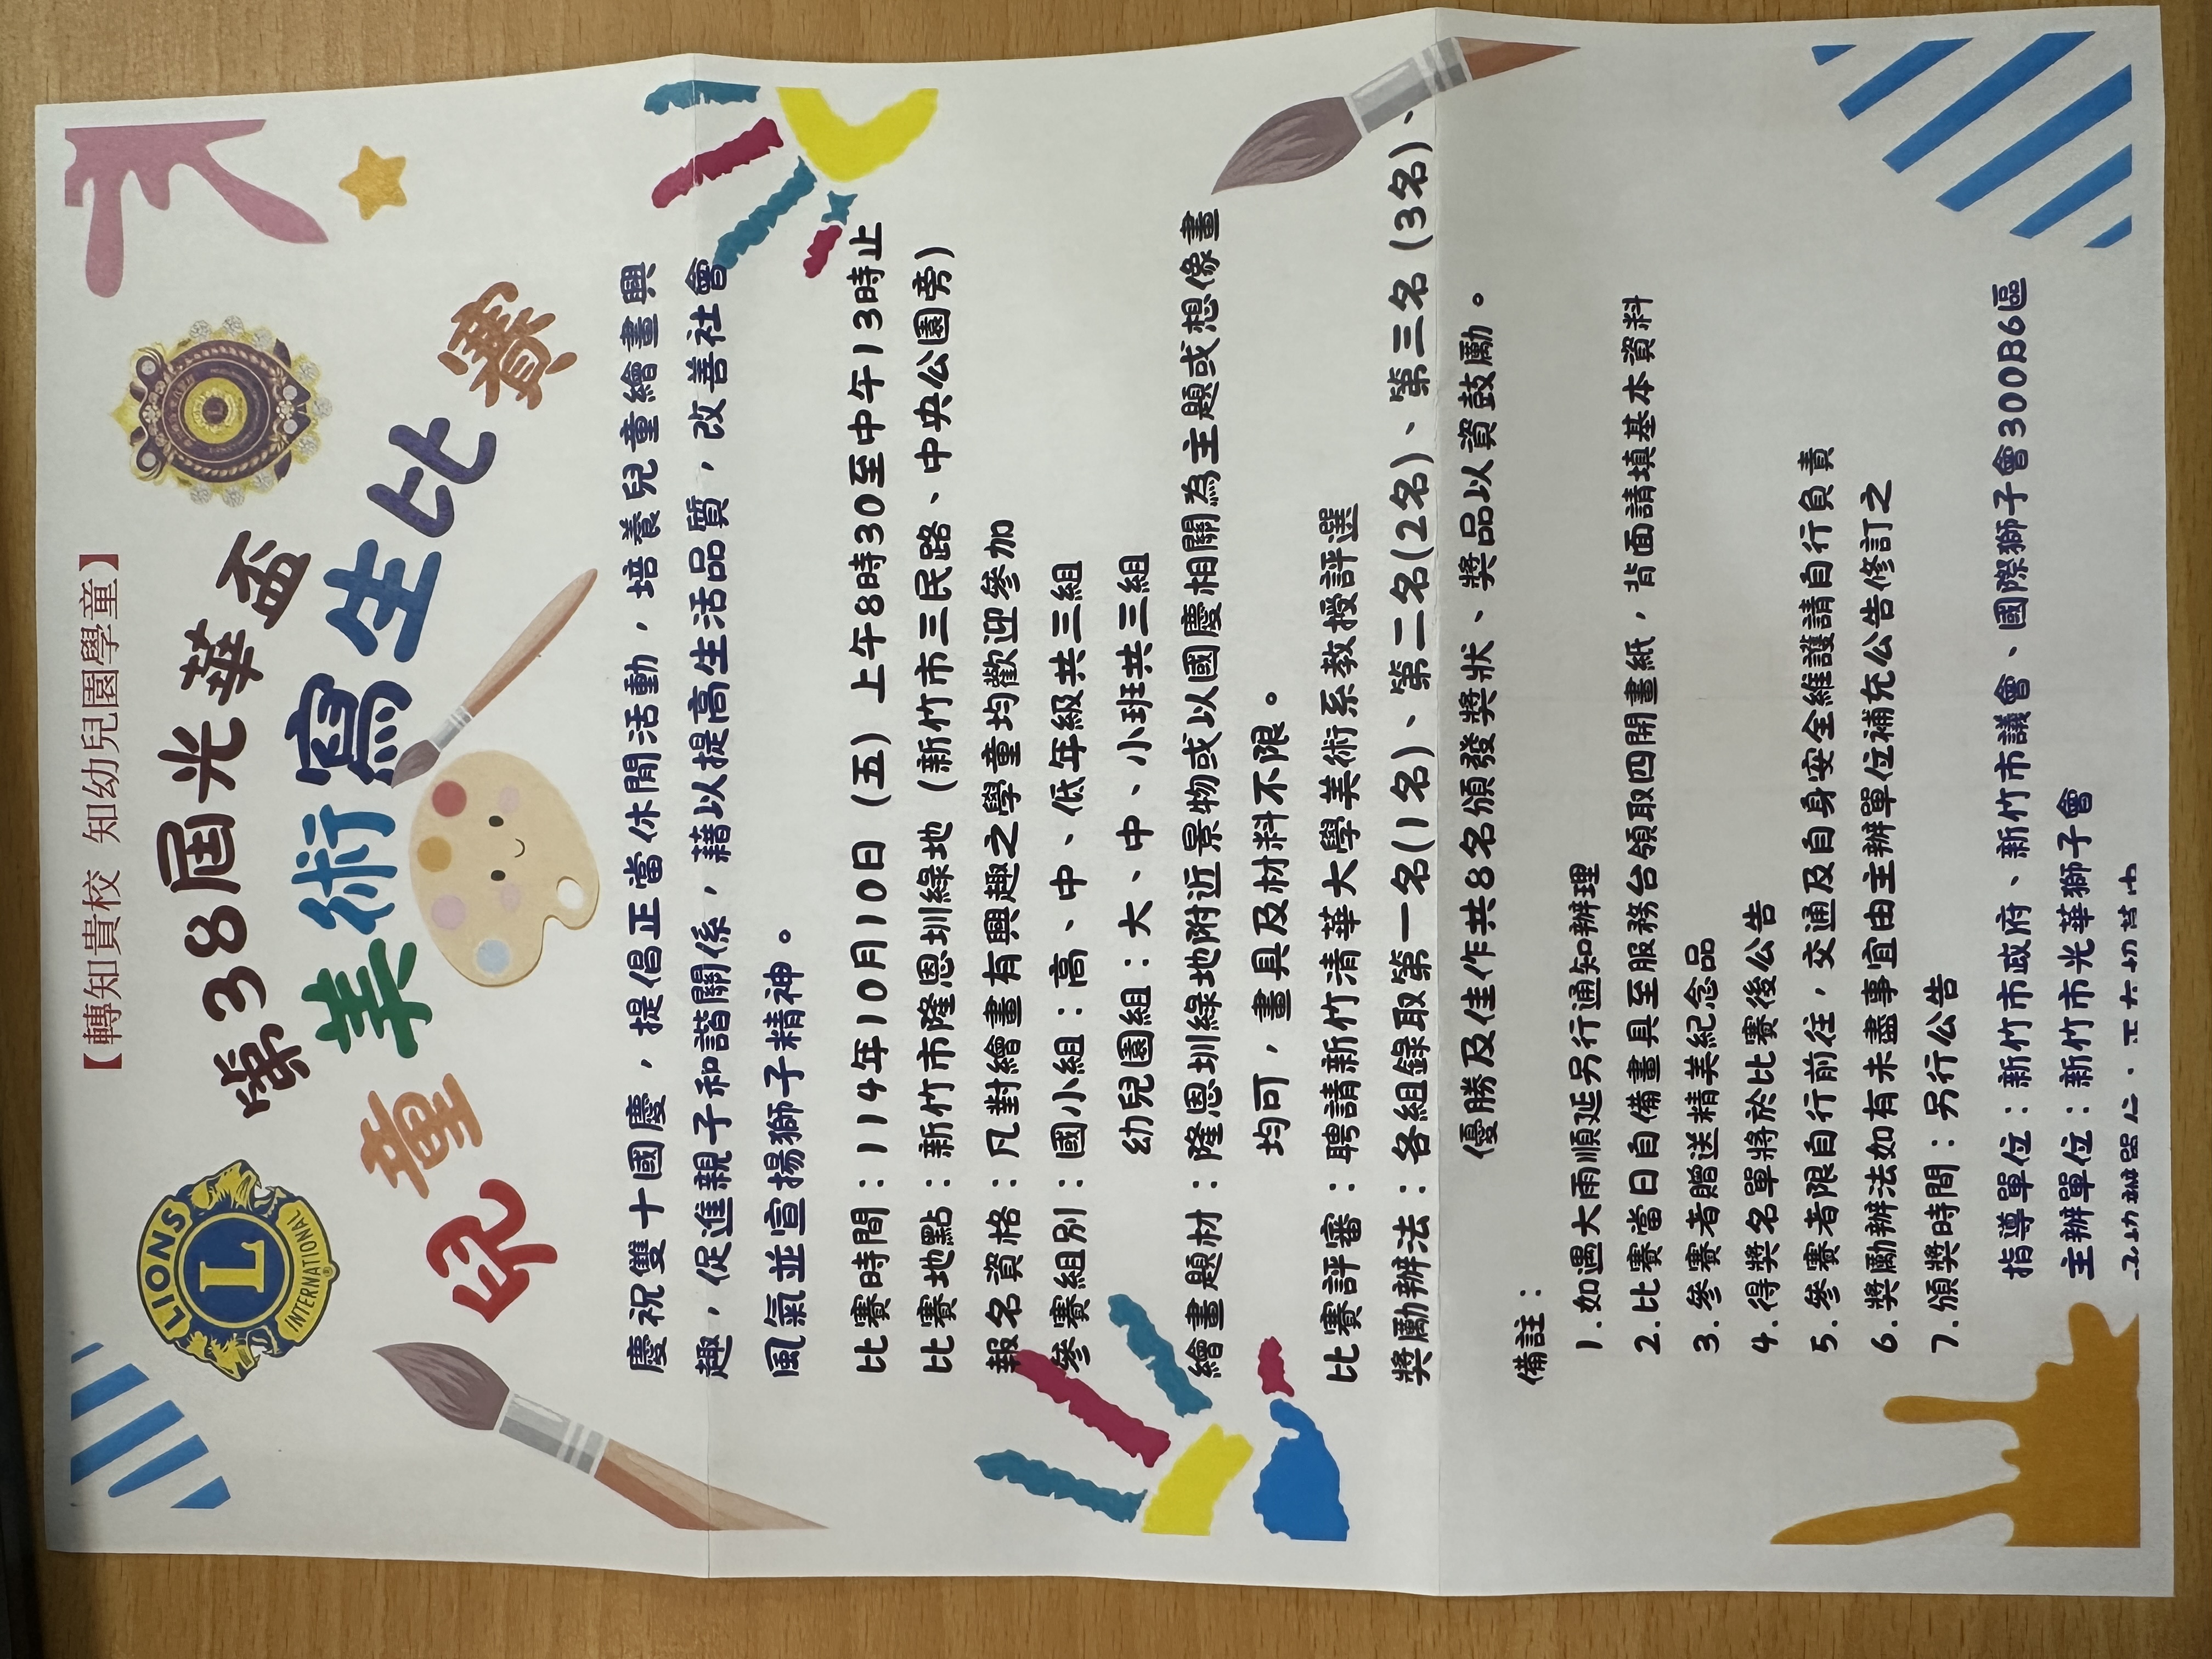 【轉知貴校 知幼兒園學童】
第38屆光華盃
兒童美術寫生比賽
LIONS
L
INTERNATIONAL
慶祝雙十國慶，提倡正當休閒活動，培養兒童繪畫興
趣，促進親子和諧關係，藉以提高生活品質，改善社會
風氣並宣揚獅子精神。
比賽時間：114年10月10日（五）上午8時30至中午13時止
比賽地點：新竹市隆恩圳綠地（新竹市三民路、中央公園旁）
報名資格：凡對繪畫有興趣之學童均歡迎參加
參賽組別：國小組：高、中、低年級共三組
幼兒園組：大、中、小班共三組
繪畫題材：隆恩圳綠地附近景物或以國慶相關為主題或想像畫
均可，畫具及材料不限。
比賽評審：聘請新竹清華大學美術系教授評選
獎勵辦法：各組錄取第一名(1名)、第二名(2名)、第三名(3名)、
優勝及佳作共8名頒發獎狀、獎品以資鼓勵。
備註：
1.如遇大雨順延另行通知辦理
2.比賽當日自備畫具至服務台領取四開畫紙，背面請填基本資料
3.參賽者贈送精美紀念品
4.得獎名單將於比賽後公告
5.參賽者限自行前往，交通及自身安全維護請自行負責
6.獎勵辦法如有未盡事宜由主辦單位補充公告修訂之
7.頒獎時間：另行公告
指導單位：新竹市政府、新竹市議會、國際獅子會300B6區
主辦單位：新竹市光華獅子會